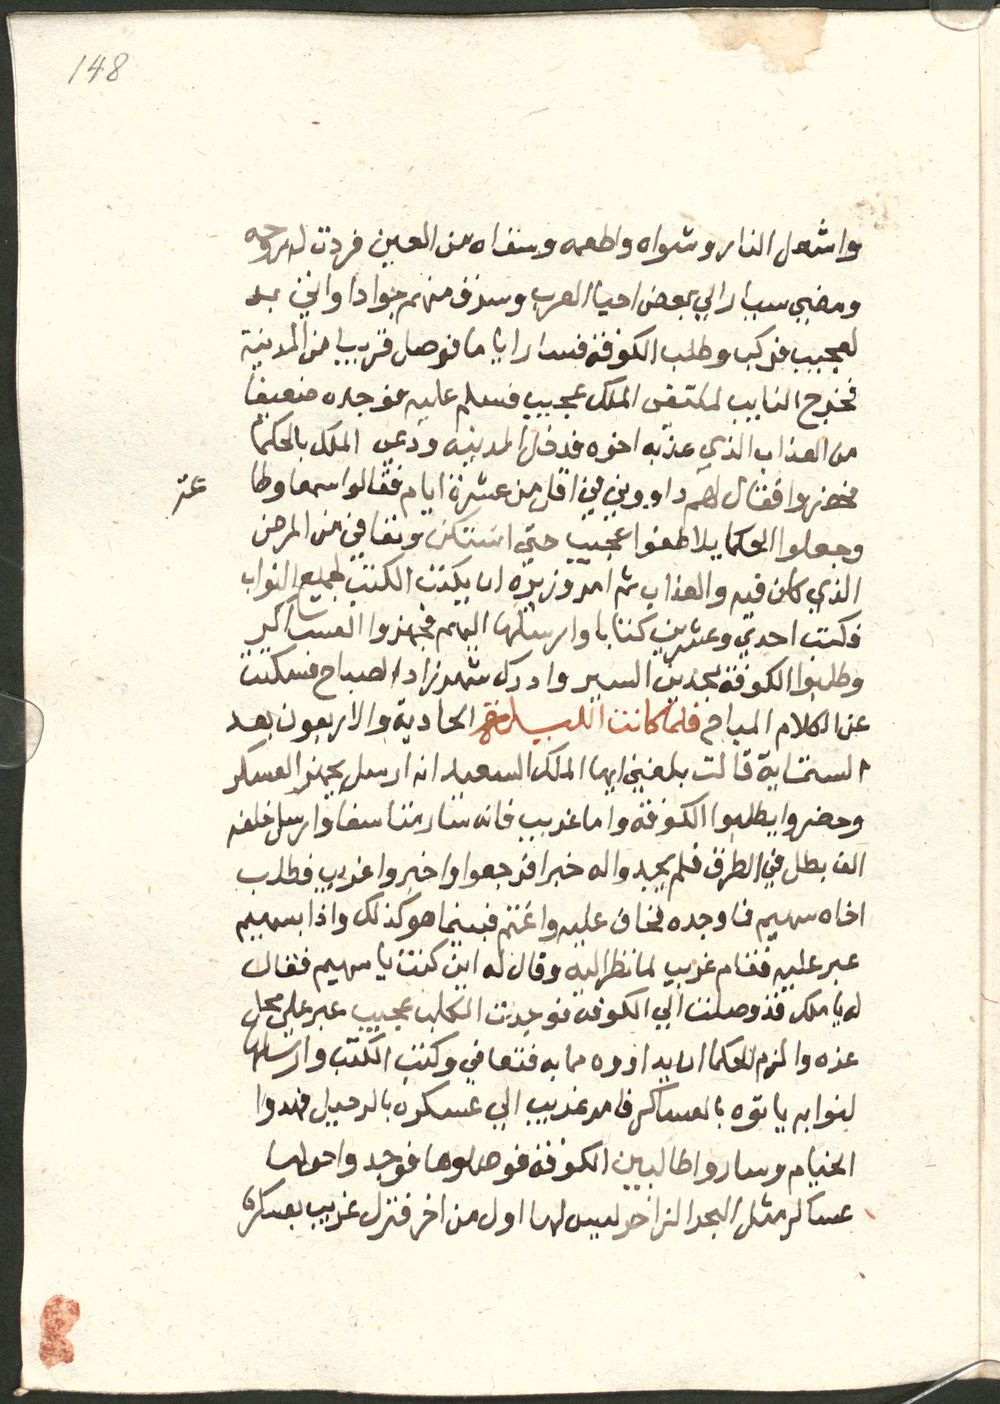 148
واشعل النار وشواه واطعمه وسقاه من العين فردت له روحه
ومضي سيار الي بعض احيا العرب وسرق منهم جوادا واتي به
لعجيب فركب وطلب الكوفة فسار اياما فوصل قريبا من المدينة
فخرج النايب لملتقى الملك عجيب فسلم عليه فوجده ضعيفا
من العذاب الذي عذبه اخوه فدخل المدينه ودعى الملك بالحكما
فحضروا فقال لهم داووني في اقل من عشرة ايام فقالوا سمعا وطا
عتر
وجعلوا الحكما يلاطفوا عجيب حتي اشتكن وتعافي من المرض
الذي كان فيه والعذاب ثم امر وزيره ان يكتب الكتب لجميع النواب
فكتب احدي وعشرين كتابا وارسلها اليهم فجهزوا العساكر
وطلبوا الكوفة مجدين السير وادرك شهرزاد الصباح فسكتت
عن الكلام المباح فلما كانت الليلة الحادية والاربعون بعد
الستماية قالت بلغني ايها الملك السعيد انه ارسل يجهز العسكر
وحضروا يطلبوا الكوفة واما غريب فانه سار متاسفا وارسل خلفه
الف بطل في الطرق فلم يجدوا له خبرا فرجعوا واخبروا غريب فطلب
اخاه سهيم فما وجده فخاف عليه واغتم فبينما هو كذلك واذا بسهيم
عبر عليه فقام غريب لما نظر اليه وقال له اين كنت يا سهيم فقال
له يا ملك قد وصلت الي الكوفة فوجدت الكلب عجيب عبر علي محل
عزه والزم الحكما ان يداووه مما به فتعافي وكتب الكتب وارسلها
لنوابه ياتوه بالعساكر فامر غريب الي عسكره بالرحيل فهدوا
الخيام وساروا طالبين الكوفة فوصلوها فوجدوا حولها
عساكر مثل البحر الزاخر ليس لها اول من اخر فنزل غريب بعسكره